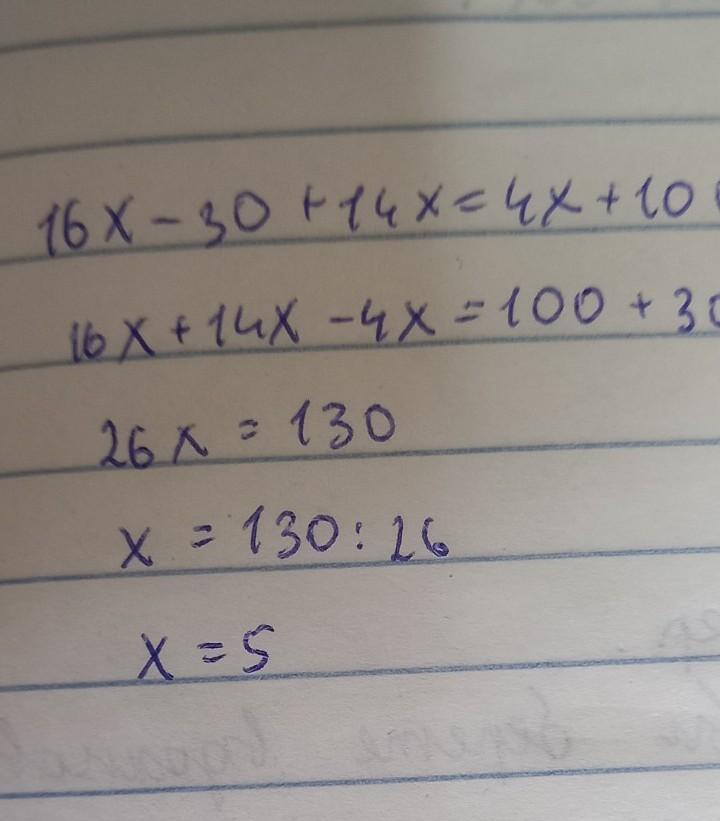 16x - 30 + 14x = 4x + 10
16x + 14x - 4x = 100 + 30
26x = 130
x = 130 : 26
x = 5